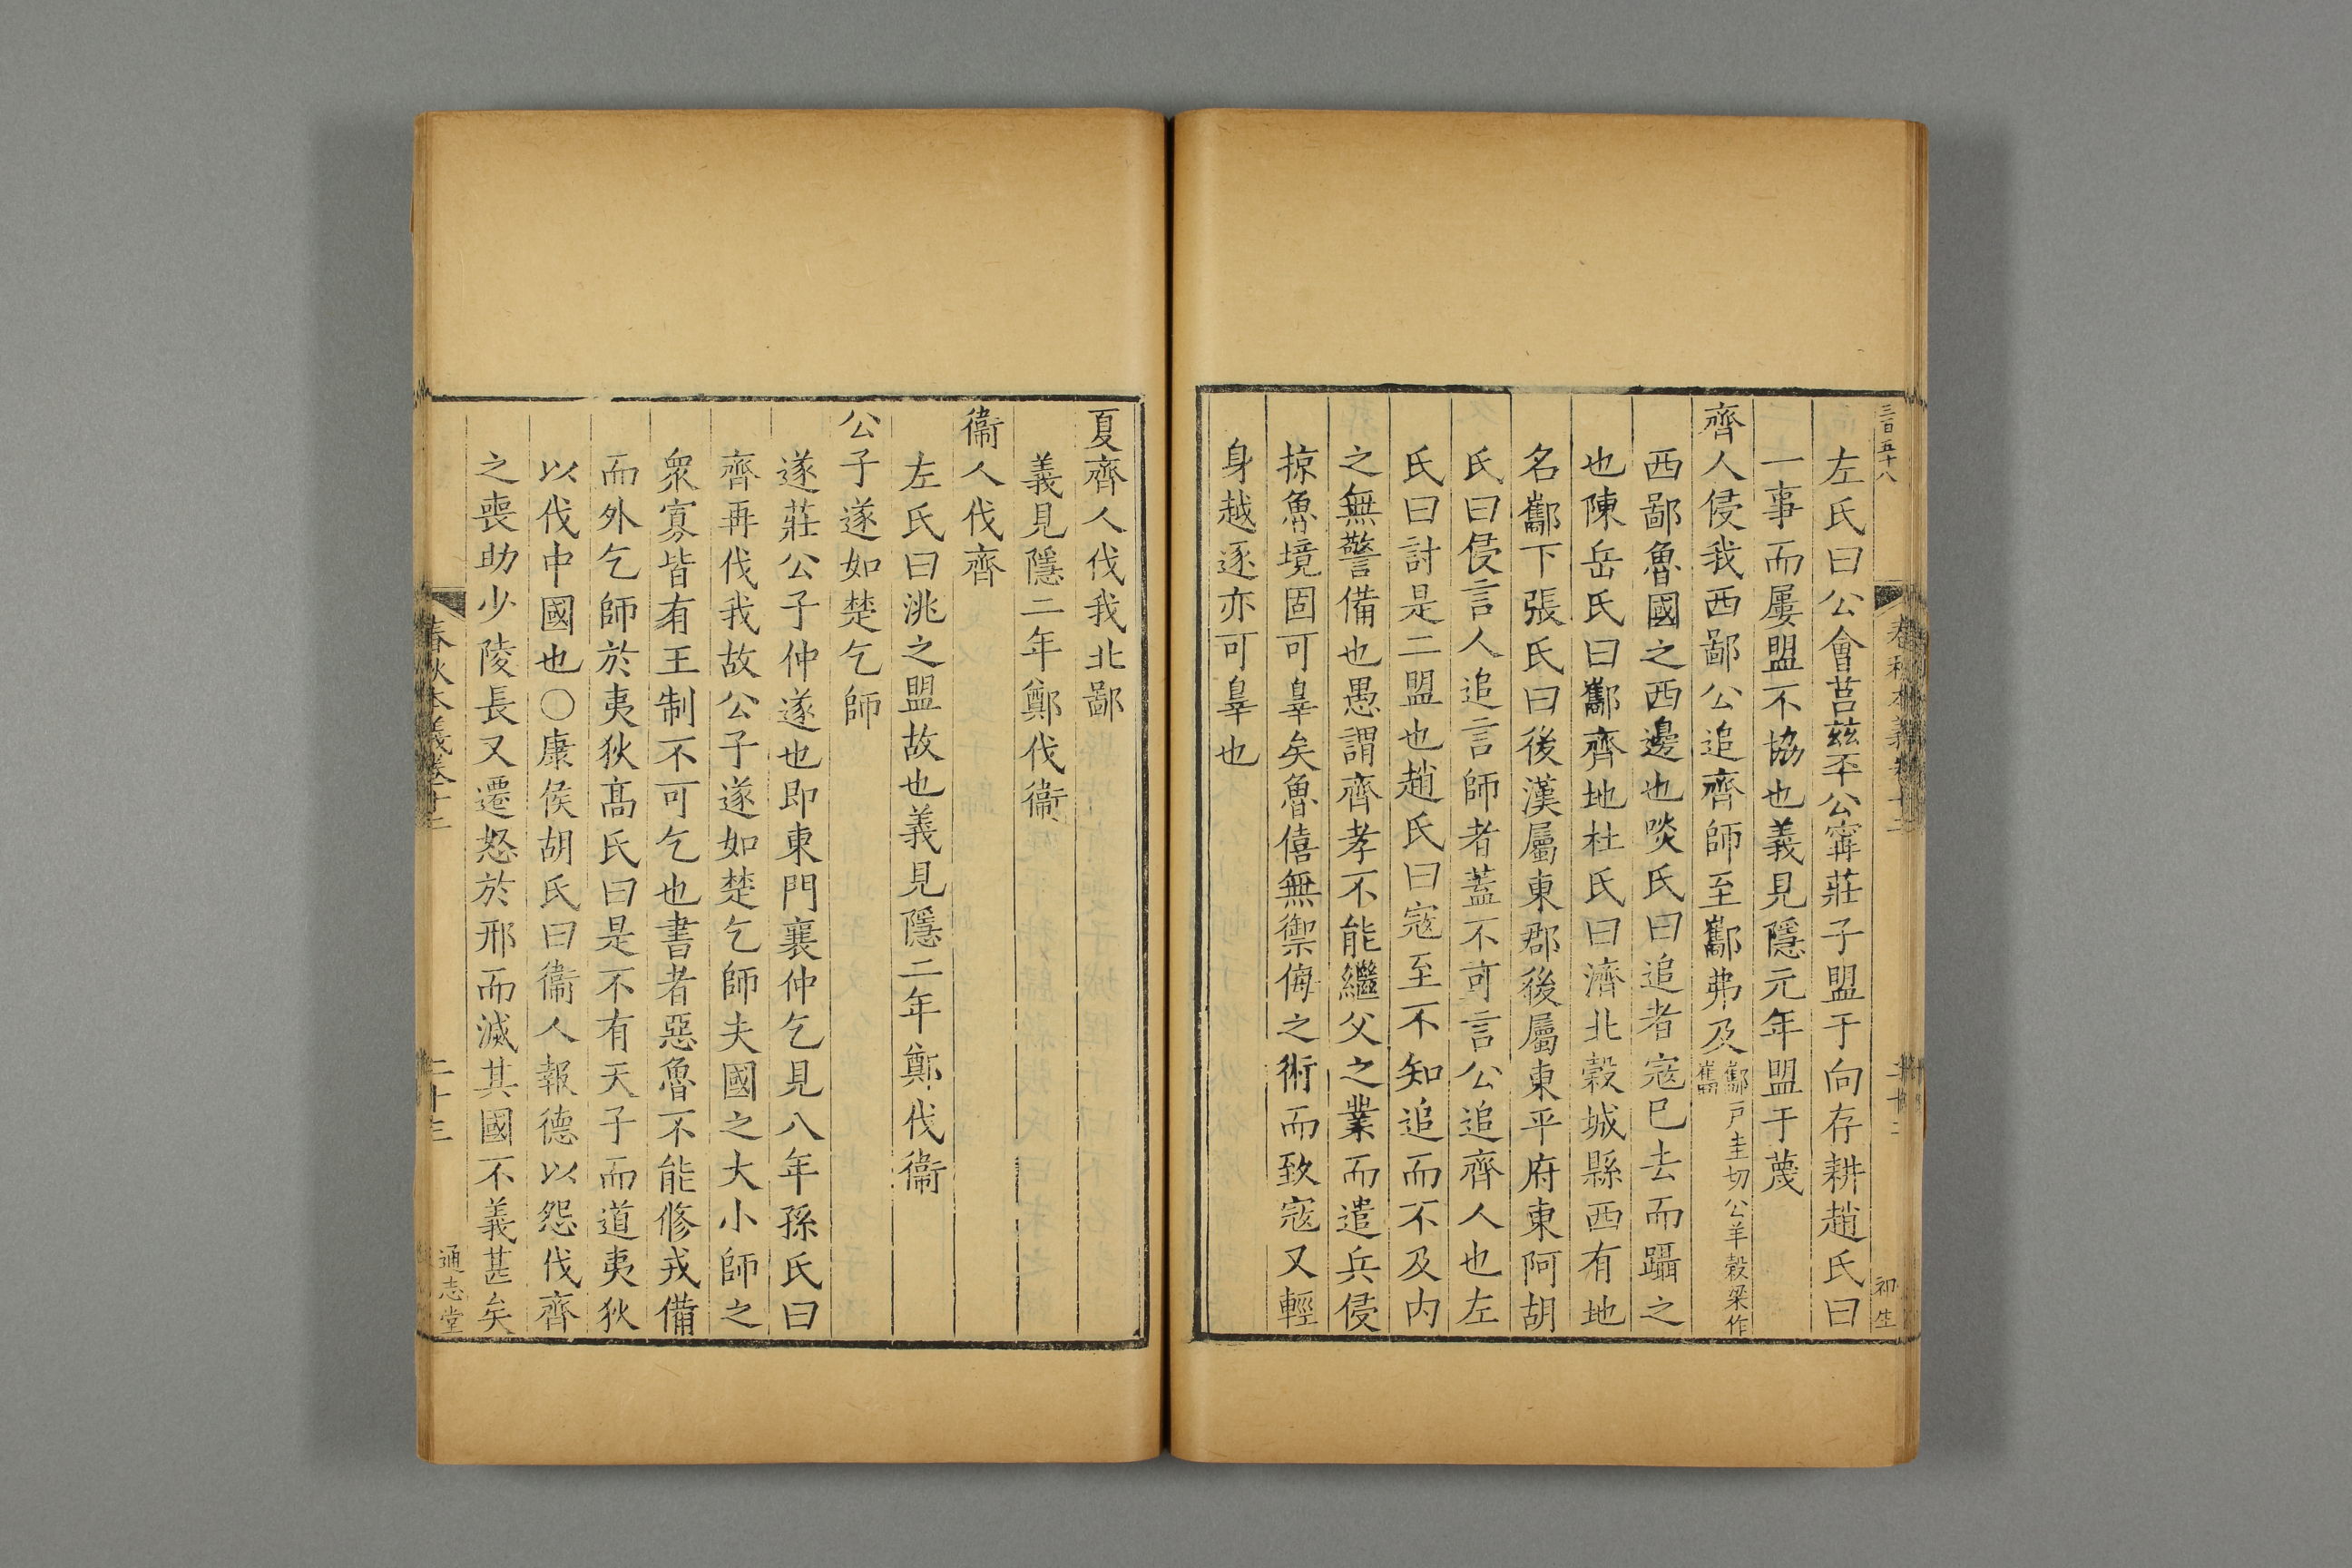 三百五十八
初生
左氏曰公會莒茲㔻公甯莊子盟于向存耕趙氏曰
一事而屢盟不協也義見隱元年盟于蔑
齊人侵我西鄙公追齊師至酅弗及酅戸圭切公羊穀梁作巂
西鄙魯國之西邊也啖氏曰追者寇巳去而躡之
也陳岳氏曰酅齊地杜氏曰濟北穀城縣西有地
名酅下張氏曰後漢屬東郡後屬東平府東阿胡
氏曰侵言人追言師者蓋不可言公追齊人也左
氏曰討是二盟也趙氏曰寇至不知追而不及内
之無警備也愚謂齊孝不能繼父之業而遣兵侵
掠魯境固可辠矣魯僖無禦侮之術而致寇又輕
身越逐亦可辠也
夏齊人伐我北鄙
義見隱二年鄭伐衞
衞人伐齊
左氏曰洮之盟故也義見隱二年鄭伐衞
公子遂如楚乞師
遂莊公子仲遂也即東門襄仲乞見八年孫氏曰
齊再伐我故公子遂如楚乞師夫國之大小師之
衆寡皆有王制不可乞也書者惡魯不能修戎備
而外乞師於夷狄髙氏曰是不有天子而道夷狄
以伐中國也〇康侯胡氏曰衞人報德以怨伐齊
之喪助少陵長又遷怒於邢而滅其國不義甚矣
春秋本義卷十二
二十三
通志堂